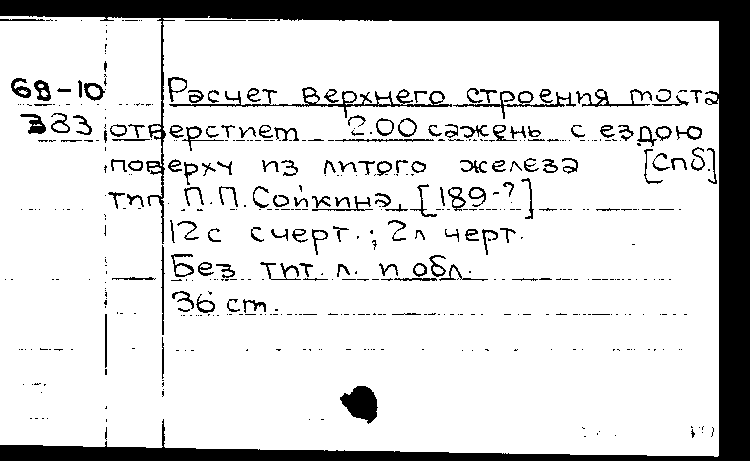 68-10 Расчет верхнего строения моста
383 отверстием 2.00 сажень с ездою
поверху из литого железа [Спб.]
тип П.П. Сойкина, [189-?]
12 с с черт.; 2 л черт.
Без тит. л. и обл.
36 cm.